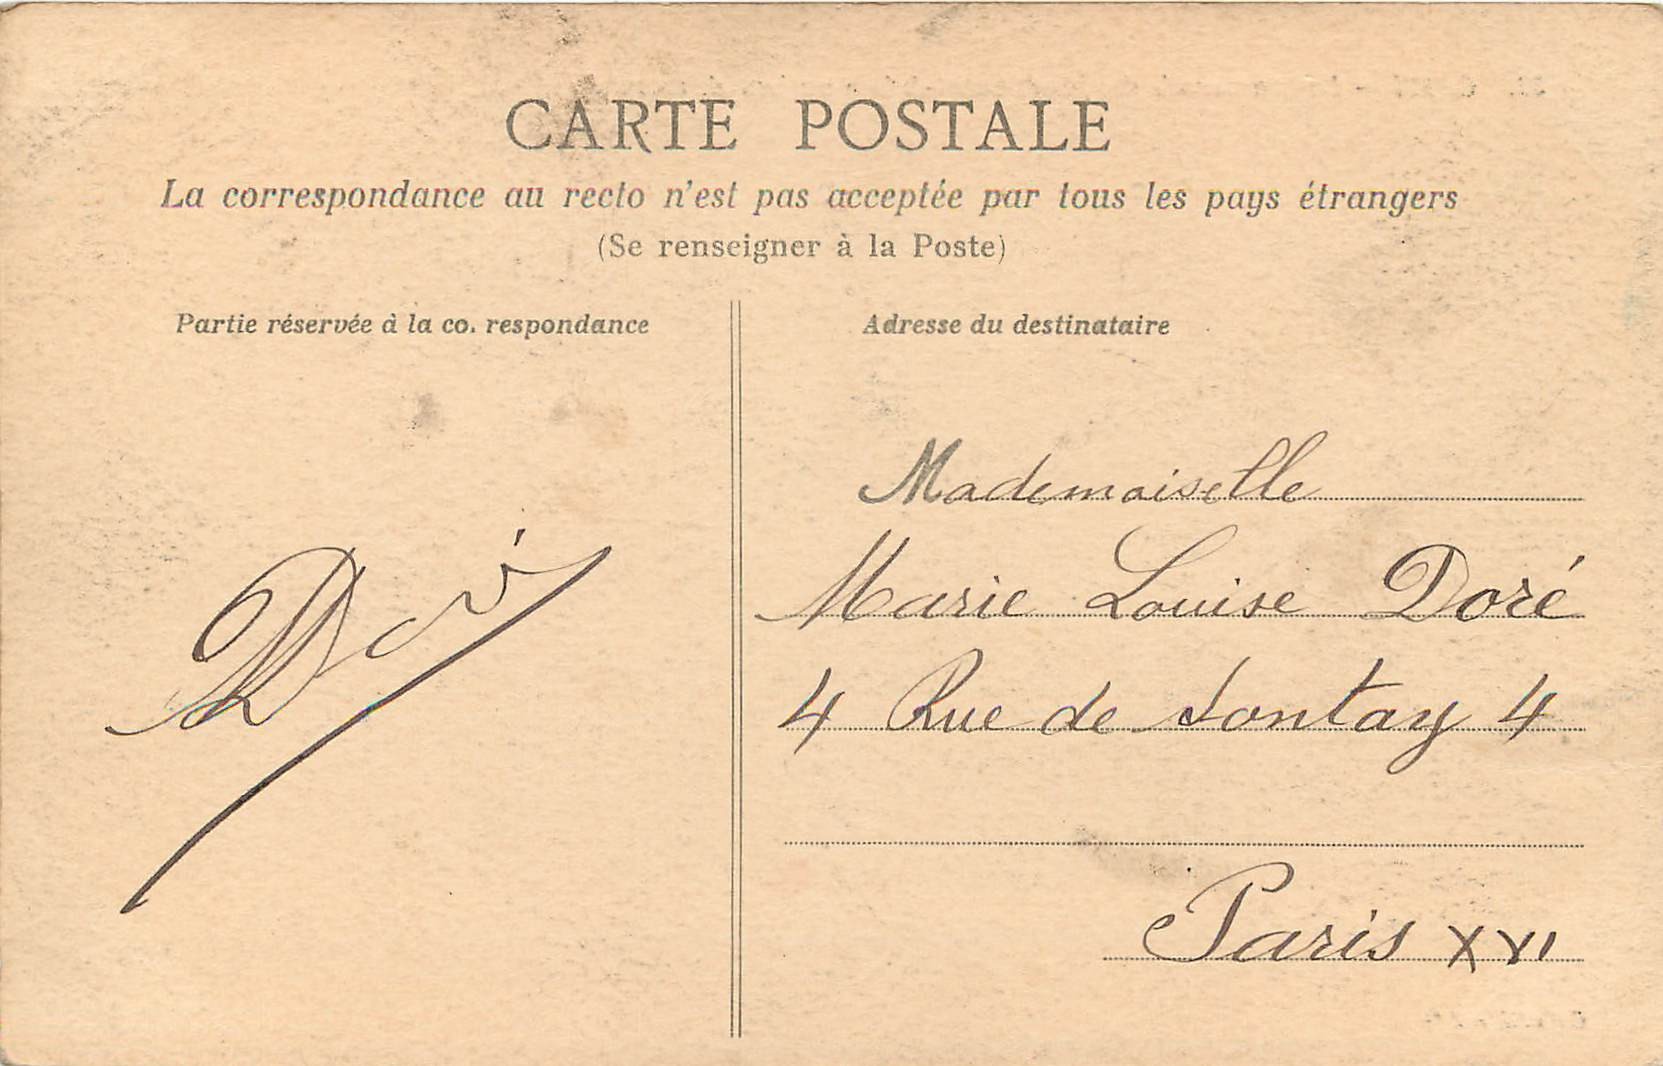 CARTE POSTALE
La correspondance au recto n'est pas acceptée par tous les pays étrangers
(Se renseigner à la Poste)
Partie réservée à la co. respondance
Adresse du destinataire
Mademoiselle
Marie Louise Doré
4 Rue de Sontay 4
Paris XVI